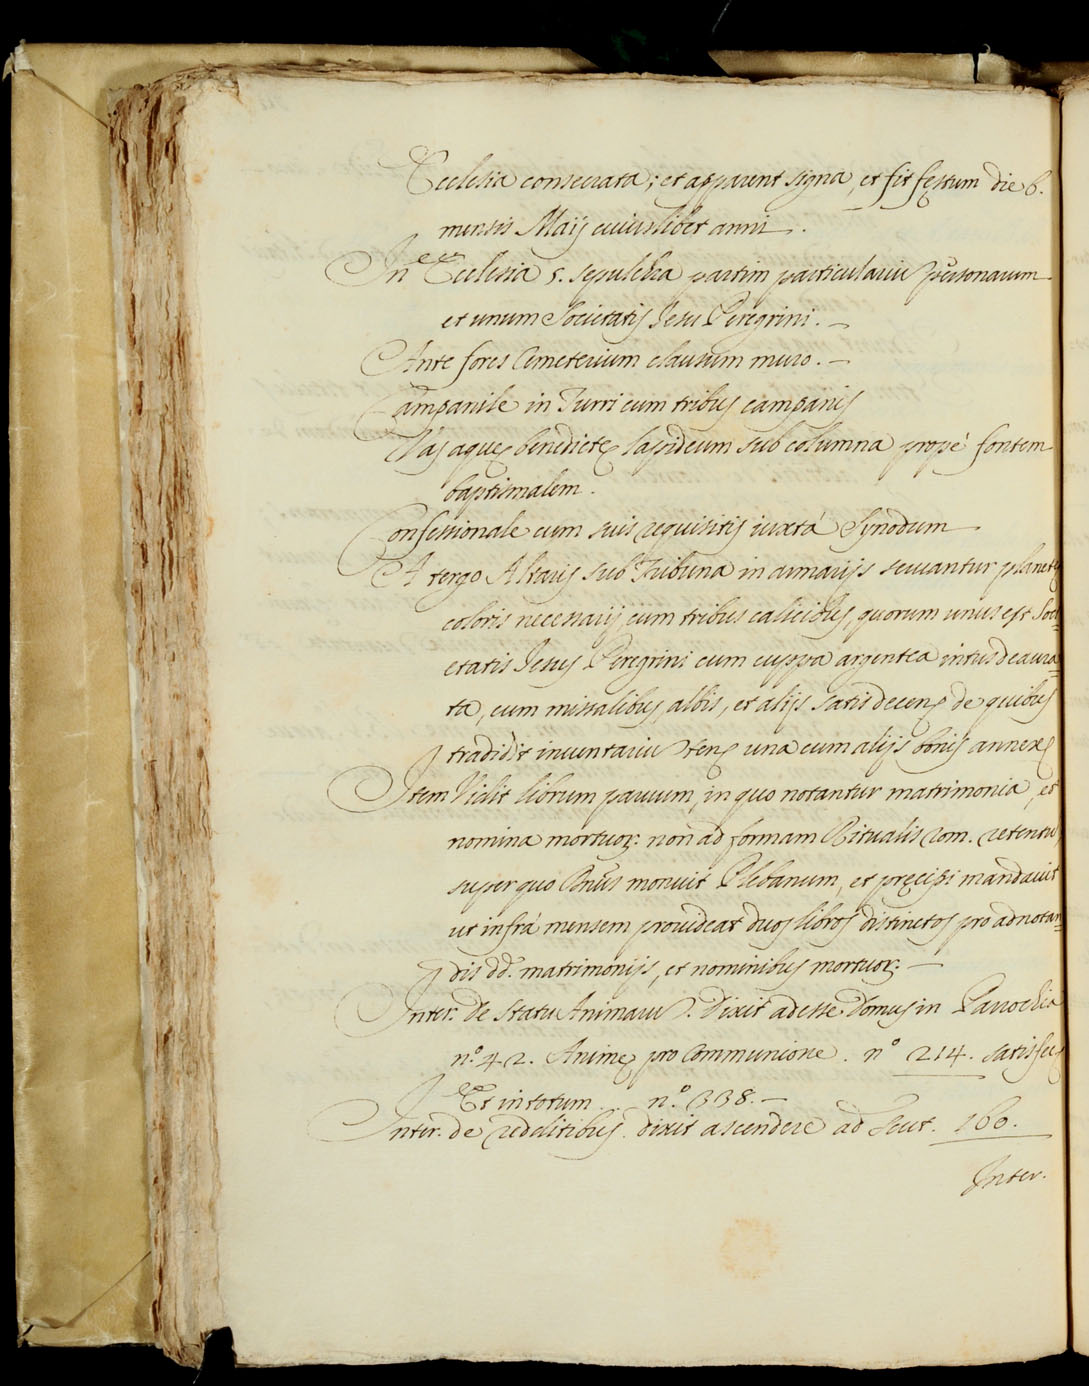 Ecclesia consecrata; et apparent signa, et fit festum die 6.
mensis Maij cuiuslibet anni.
In Ecclesia 5. sepulchra partim particulariu personarum
et unum Societatis Jesu Peregrini.
Ante fores Cemeterium clausum muro.
Campanile in Turri cum tribus campanis
Vas aquę benedictę lapideum sub columna propè fontem
baptismalem.
Confessionale cum suis requisitis iuxtà Synodum
A tergo Altaris sub Tribuna in armarijs seruantur planetę
coloris necessarij cum tribus calicibus, quorum unus est Soci-
etatis Jesus Peregrini cum cuppa argentea intus deaura-
ta, cum missalibus, albis, et alijs satis decen. de quibus
tradidit inuentariu ten. una cum alijs bonis annex.
Item Vidit librum paruum, in quo notantur matrimonia, et
nomina mortuor: non ad formam Ritualis rom. retentu,
super quo Dnus monuit Plebanum, et pręcipi mandauit
ut infrà mensem prouideat duos libros distinctos pro adnotan-
dis dd. matrimonijs, et nominibus mortuor:
Inter. de statu Animaru. dixit adesse domus in Parochia
n.º 42. Animę pro Communione. nº 214. satis fec.
Et in totum n.º 338.
Inter. de redditibus dixit ascendere ad scut. 160.
Inter.